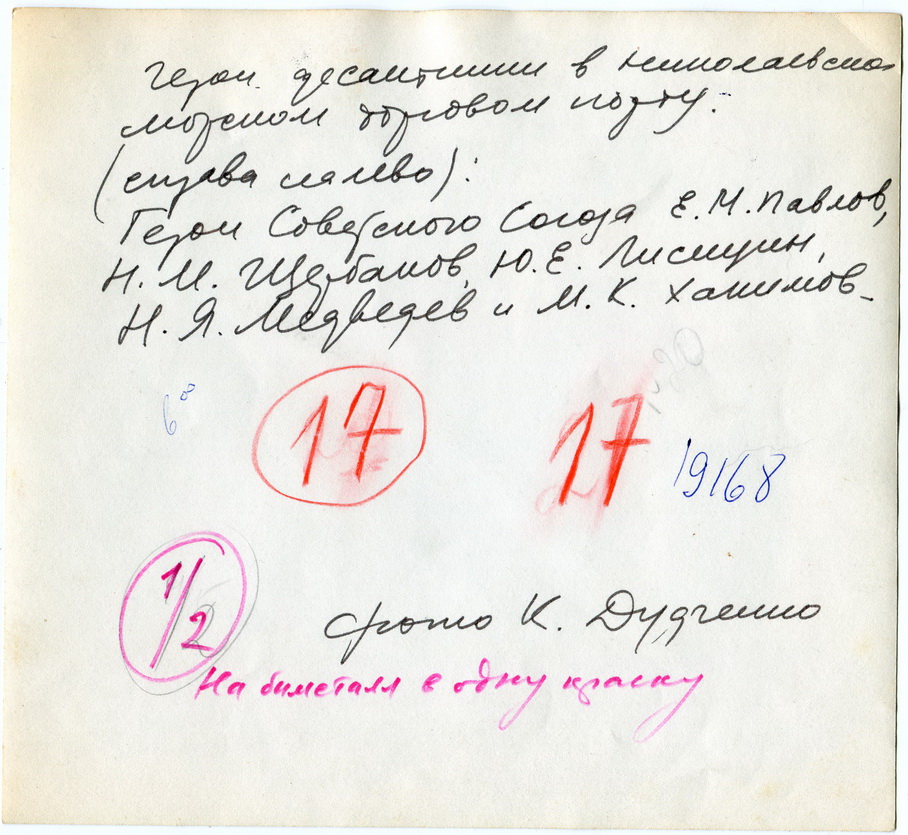 Герои десантники в Николаевском
морском торговом порту.
(справа налево):
Герои Советского Союза Е.М. Павлов,
Н.М. Щербаков, Ю.Е. Лисицин,
Н.Я. Медведев и М.К. Хакимов.
6°
17
17
19168
1/2
фото К. Дудченко
На биметалл в одну краску